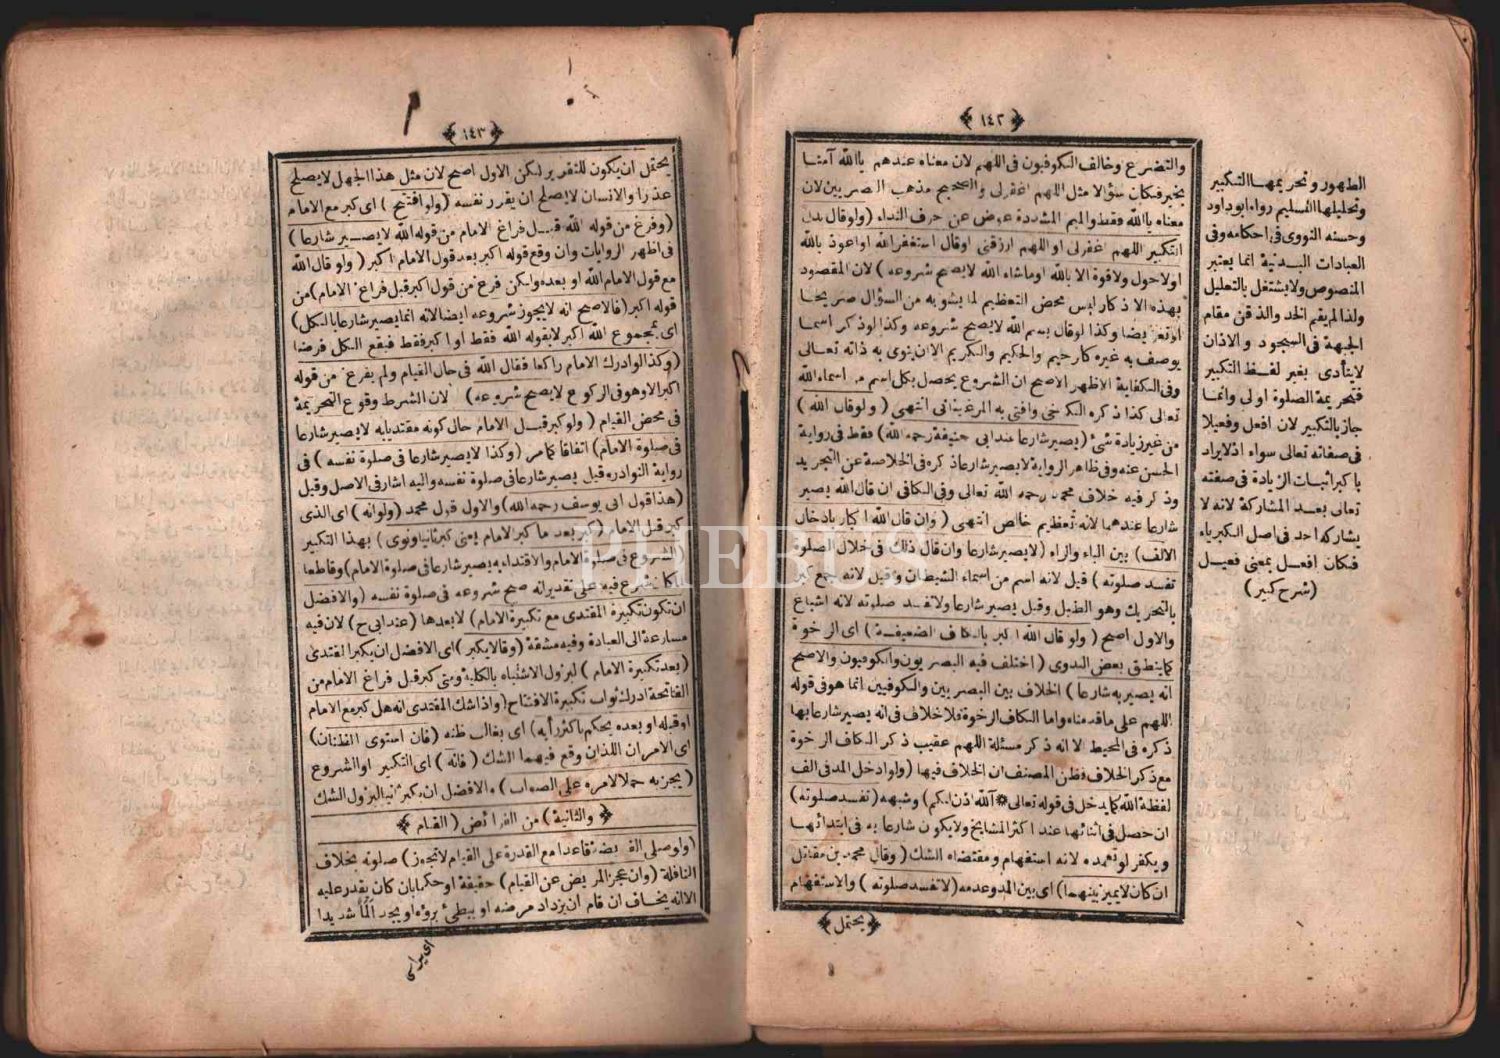 ﴿ ١٤٢ ﴾
والتضرع وخالف الكوفيون فى اللهم لان معناه عندهم ياالله آمنا
بخير فكان سؤالا مثل اللهم اغفرلى والصحيح مذهب البصريين لان
معناه ياالله فقط والميم المشددة عوض عن حرف النداء (ولوقال بدل
التكبير اللهم اغفرلى او اللهم ارزقنى اوقال استغفرالله اواعوذ بالله
اولاحول ولاقوة الابالله اوماشاء الله لايصح شروعه) لان المقصود
بهذه الاذكار ليس محض التعظيم لما يشوبه من السؤال صريحا
اوتعريضا وكذا لوقال بسم الله لايصح شروعه وكذا لوذكر اسما
يوصف به غيره كارحيم والحكيم والكريم الاان ينوى به ذاته تعالى
وفى الكفاية الاظهر الاصح ان الشروع يحصل بكل اسم من اسماء الله
تعالى كذا ذكره الكرخى وافتى به المرغينانى انتهى (ولوقال الله)
من غير زيادة شئ (يصير شارعا عندابى حنيفة رحمه الله) فقط فى رواية
الحسن عنه وفى ظاهر الرواية لايصير شارعا ذكره فى الخلاصة عن التجريد
وذكر فيه خلاف محمد رحمه الله تعالى وفى الكافى ان قال الله يصير
شارعا عندهما لانه تعظيم خالص انتهى (وان قال الله اكبار بادخال
الالف) بين الباء والراء (لايصير شارعا وان قال ذلك فى خلال الصلوة
تفسد صلوته) قيل لانه اسم من اسماء الشيطان وقيل لانه جمع كبر
بالتحريك وهو الطبل وقيل يصير شارعا ولاتفسد صلوته لانه اشباع
والاول اصح (ولوقال الله اكبر بالكاف الضعيفة) اى الرخوة
كماينطق بعض البدوى (اختلف فيه البصريون والكوفيون والاصح
انه يصيربه شارعا) الخلاف بين البصريين والكوفيين انما هوفى قوله
اللهم على ماقدمناه واما الكاف الرخوة فلاخلاف فى انه يصير شارعابها
ذكره فى المحيط الاانه ذكر مسئلة اللهم عقيب ذكر الكاف الرخوة
مع ذكر الخلاف فظن المصنف ان الخلاف فيها (ولوادخل المد فى الف
لفظة الله كايدخل فى قوله تعالى * آلله اذن لكم) وشبهه (تفسد صلوته)
ان حصل فى اثنائها عند اكثر المشايخ ولايكون شارعا به فى ابتدائها
ويكفر لوتعمده لانه استفهام ومقتضاه الشك (وقال محمد بن مقاتل
ان كان لايميز بينهما) اى بين المد وعدمه (لاتفسد صلوته) والاستفهام
﴿ يحتمل ﴾
الطهور وتحريمها التكبير
وتحليلها التسليم رواه ابوداود
وحسنه النووى فى احكامه وفى
العبادات البدنية انما يعتبر
المنصوص ولايشتغل بالتعليل
ولذا لم يقم الخد والذقن مقام
الجبهة فى السجود والاذان
لايتأدى بغير لفظ التكبير
فتحريمة الصلوة اولى وانما
جاز بالتكبير لان افعل وفعيلا
فى صفاته تعالى سواء اذلايراد
باكبر اثبات الزيادة فى صفته
تعالى بعد المشاركة لانه لا
يشاركه احد فى اصل الكبرياء
فكان افعل بمعنى فعيل
(شرح كبير)
﴿ ١٤٣ ﴾
يحتمل ان يكون للتقرير لكن الاول اصح لان مثل هذا الجهل لايصلح
عذرا والانسان لايصلح ان يقرر نفسه (ولوافتتح) اى كبر مع الامام
(وفرغ من قوله الله قبل فراغ الامام من قوله الله لايصير شارعا)
فى اظهر الروايات وان وقع قوله اكبر بعد قول الامام اكبر (ولوقال الله
مع قول الامام الله او بعده ولكن فرغ من قول اكبر قبل فراغ الامام) من
قوله اكبر (فالاصح انه لايجوز شروعه ايضا لانه انمايصير شارعا بالكل)
اى بمجموع الله اكبر لابقوله الله فقط او اكبر فقط فيقع الكل فرضا
(وكذا لوادرك الامام راكعا فقال الله فى حال القيام ولم يفرغ من قوله
اكبر الاوهو فى الركوع لايصح شروعه) لان الشرط وقوع التحريمة
فى محض القيام (ولوكبر قبل الامام حال كونه مقتديا به لايصير شارعا
فى صلوة الامام) اتفاقا كمامر (وكذا لايصير شارعا فى صلوة نفسه) فى
رواية النوادر وقيل يصير شارعا فى صلوة نفسه واليه اشار فى الاصل وقيل
(هذاقول ابى يوسف رحمه الله) والاول قول محمد (ولوانه) اى الذى
كبر قبل الامام (كبر بعد ما كبر الامام يعنى كبرثانيا ونوى) بهذا التكبير
(الشروع فى صلوة الامام والاقتداء به يصير شارعا فى صلوة الامام) وقاطعا
لماكان شرع فيه على تقدير انه صح شروعه فى صلوة نفسه (والافضل
ان تكون تكبيرة المقتدى مع تكبيرة الامام) لابعدها (عندابى ح) لان فيه
مسارعة الى العبادة وفيه مشقة (وقالا يكبر) اى الافضل ان يكبر المقتدى
(بعد تكبيرة الامام) ليزول الاشتباه بالكلية ومتى كبر قبل فراغ الامام من
الفاتحة ادرك ثواب تكبيرة الافتتاح (واذا شك المقتدى انه هل كبر مع الامام
اوقبله او بعده يحكم باكثر رأيه) اى بغالب ظنه (فان استوى الظنان)
اى الامران اللذان وقع فيهما الشك (فانه) اى التكبير اوالشروع
(يجزيه حملا لامره على الصواب) والافضل ان يكبر ثانيا ليزول الشك
﴿ والثانية) من الفرائض (القيام ﴾
(ولوصلى الفريضة قاعدا مع القدرة على القيام لاتجوز) صلوته بخلاف
النافلة (وان عجز المريض عن القيام) حقيقة او حكما بان كان يقدر عليه
الاانه يخاف ان قام ان يزداد مرضه او يبطئ برؤه او يجد ألما شديدا
PHEBUS